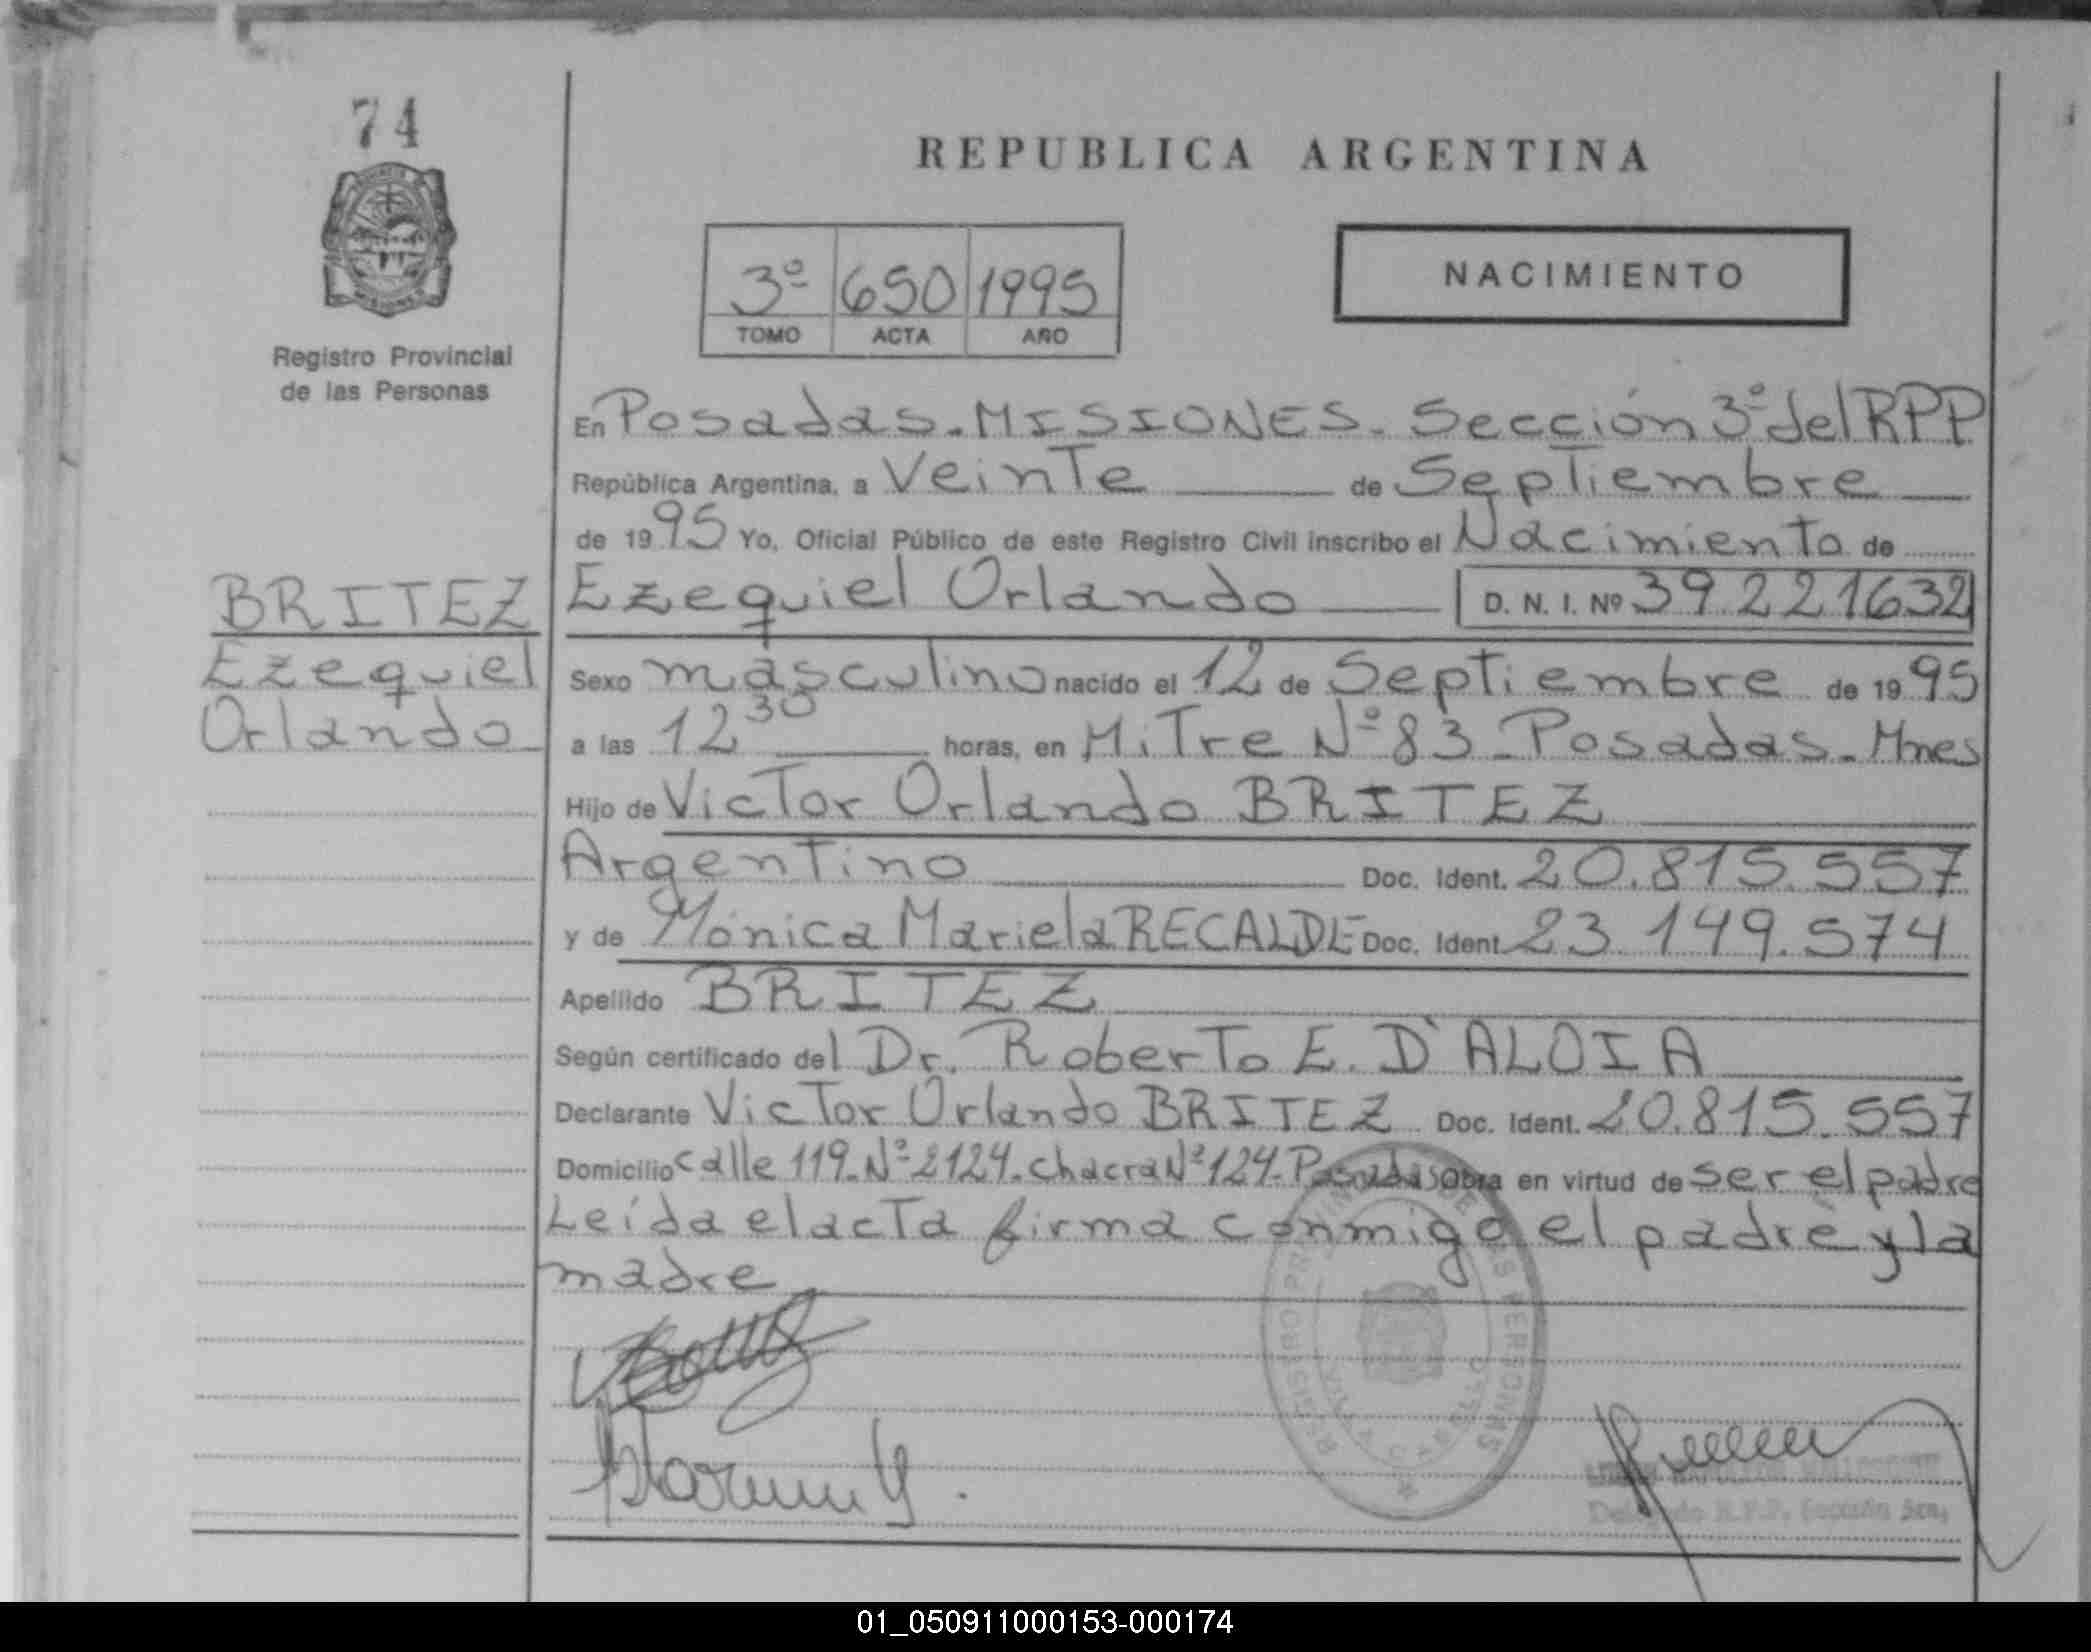 74
REPUBLICA ARGENTINA
3º 650 1995
TOMO ACTA AÑO
NACIMIENTO
Registro Provincial
de las Personas
En Posadas - MISIONES - Sección 3º del RPP
República Argentina, a Veinte de Septiembre
de 1995 Yo, Oficial Público de este Registro Civil inscribo el Nacimiento de
BRITEZ
Ezequiel
Orlando
Ezequiel Orlando D. N. I. Nº 39.221632
Sexo masculino nacido el 12 de Septiembre de 1995
a las 12 30 horas, en Mitre Nº 83 - Posadas - Mnes
Hijo de Victor Orlando BRITEZ
Argentino Doc. Ident. 20.815.557
y de Mónica Mariela RECALDE Doc. Ident. 23.149.574
Apellido BRITEZ
Según certificado del Dr. Roberto E. D'ALOIA
Declarante Victor Orlando BRITEZ Doc. Ident. 20.815.557
Domicilio calle 119 - Nº 2124 - chacra Nº 124 - Posadas Obra en virtud de ser el padre
Leída el acta firma conmigo el padre y la
madre
REGISTRO PROVINCIAL DE LAS PERSONAS
Delegado R.P.P. Sección 3ra.
01_050911000153-000174